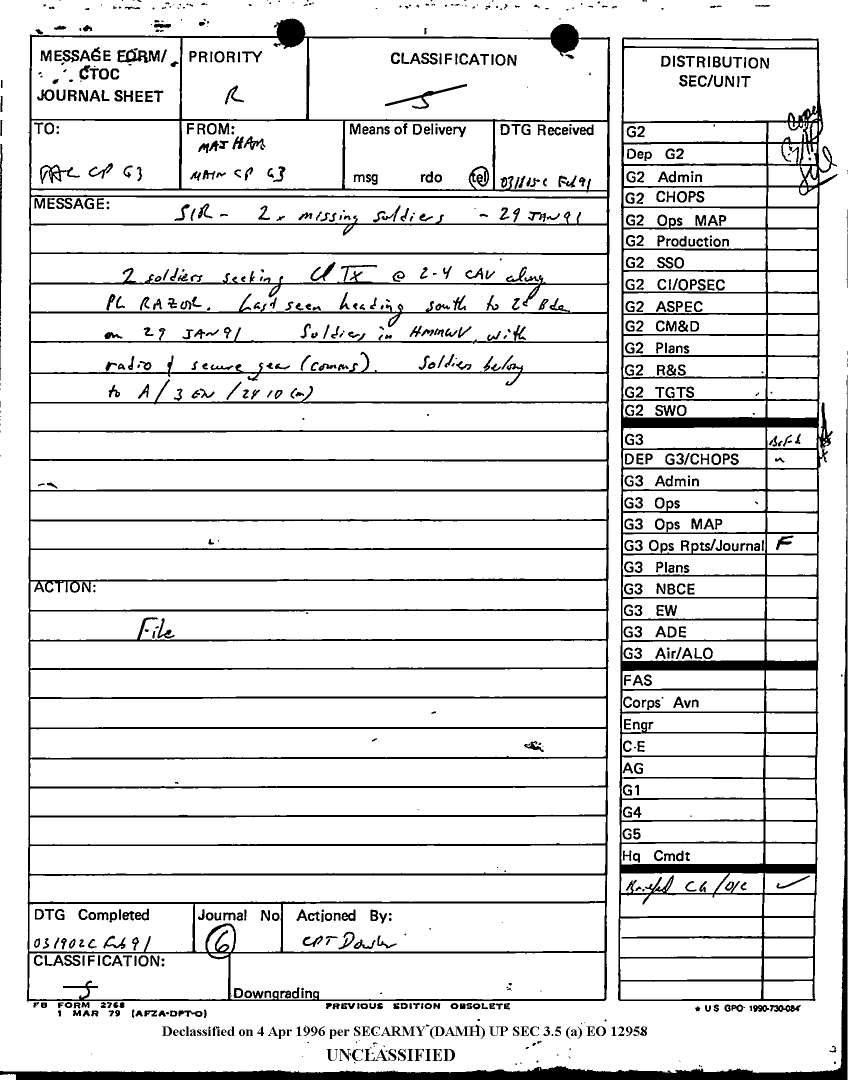 MESSAGE FORM/
CTOC
JOURNAL SHEET
PRIORITY
R
CLASSIFICATION
S
TO:
CP G3
FROM:
MAJ HAM
MAIN CP G3
Means of Delivery
msg rdo tel
DTG Received
C Feb 91
MESSAGE:
SIR - 2 x missing soldiers - 29 JAN 91
2 soldiers seeking Cl IX @ 2-4 CAV along
PL RAZOR. Last seen heading south to 2d Bde
on 29 JAN 91 Soldiers in HMMWV, with
radio & secure gear (comms). Soldiers belong
to A/3 EN/24 ID (m)
ACTION:
File
DTG Completed
031902C Feb 91
Journal No
6
Actioned By:
CPT
CLASSIFICATION:
S
Downgrading
FB FORM 2768
1 MAR 79 (AFZA-DPT-O)
PREVIOUS EDITION OBSOLETE
DISTRIBUTION
SEC/UNIT
Copy
File
G2
Dep G2
G2 Admin
G2 CHOPS
G2 Ops MAP
G2 Production
G2 SSO
G2 CI/OPSEC
G2 ASPEC
G2 CM&D
G2 Plans
G2 R&S
G2 TGTS
G2 SWO
G3
DEP G3/CHOPS
G3 Admin
G3 Ops
G3 Ops MAP
G3 Ops Rpts/Journal F
G3 Plans
G3 NBCE
G3 EW
G3 ADE
G3 Air/ALO
FAS
Corps Avn
Engr
C-E
AG
G1
G4
G5
Hq Cmdt
Briefed CG
* US GPO: 1990-730-084
Declassified on 4 Apr 1996 per SECARMY (DAMH) UP SEC 3.5 (a) EO 12958
UNCLASSIFIED